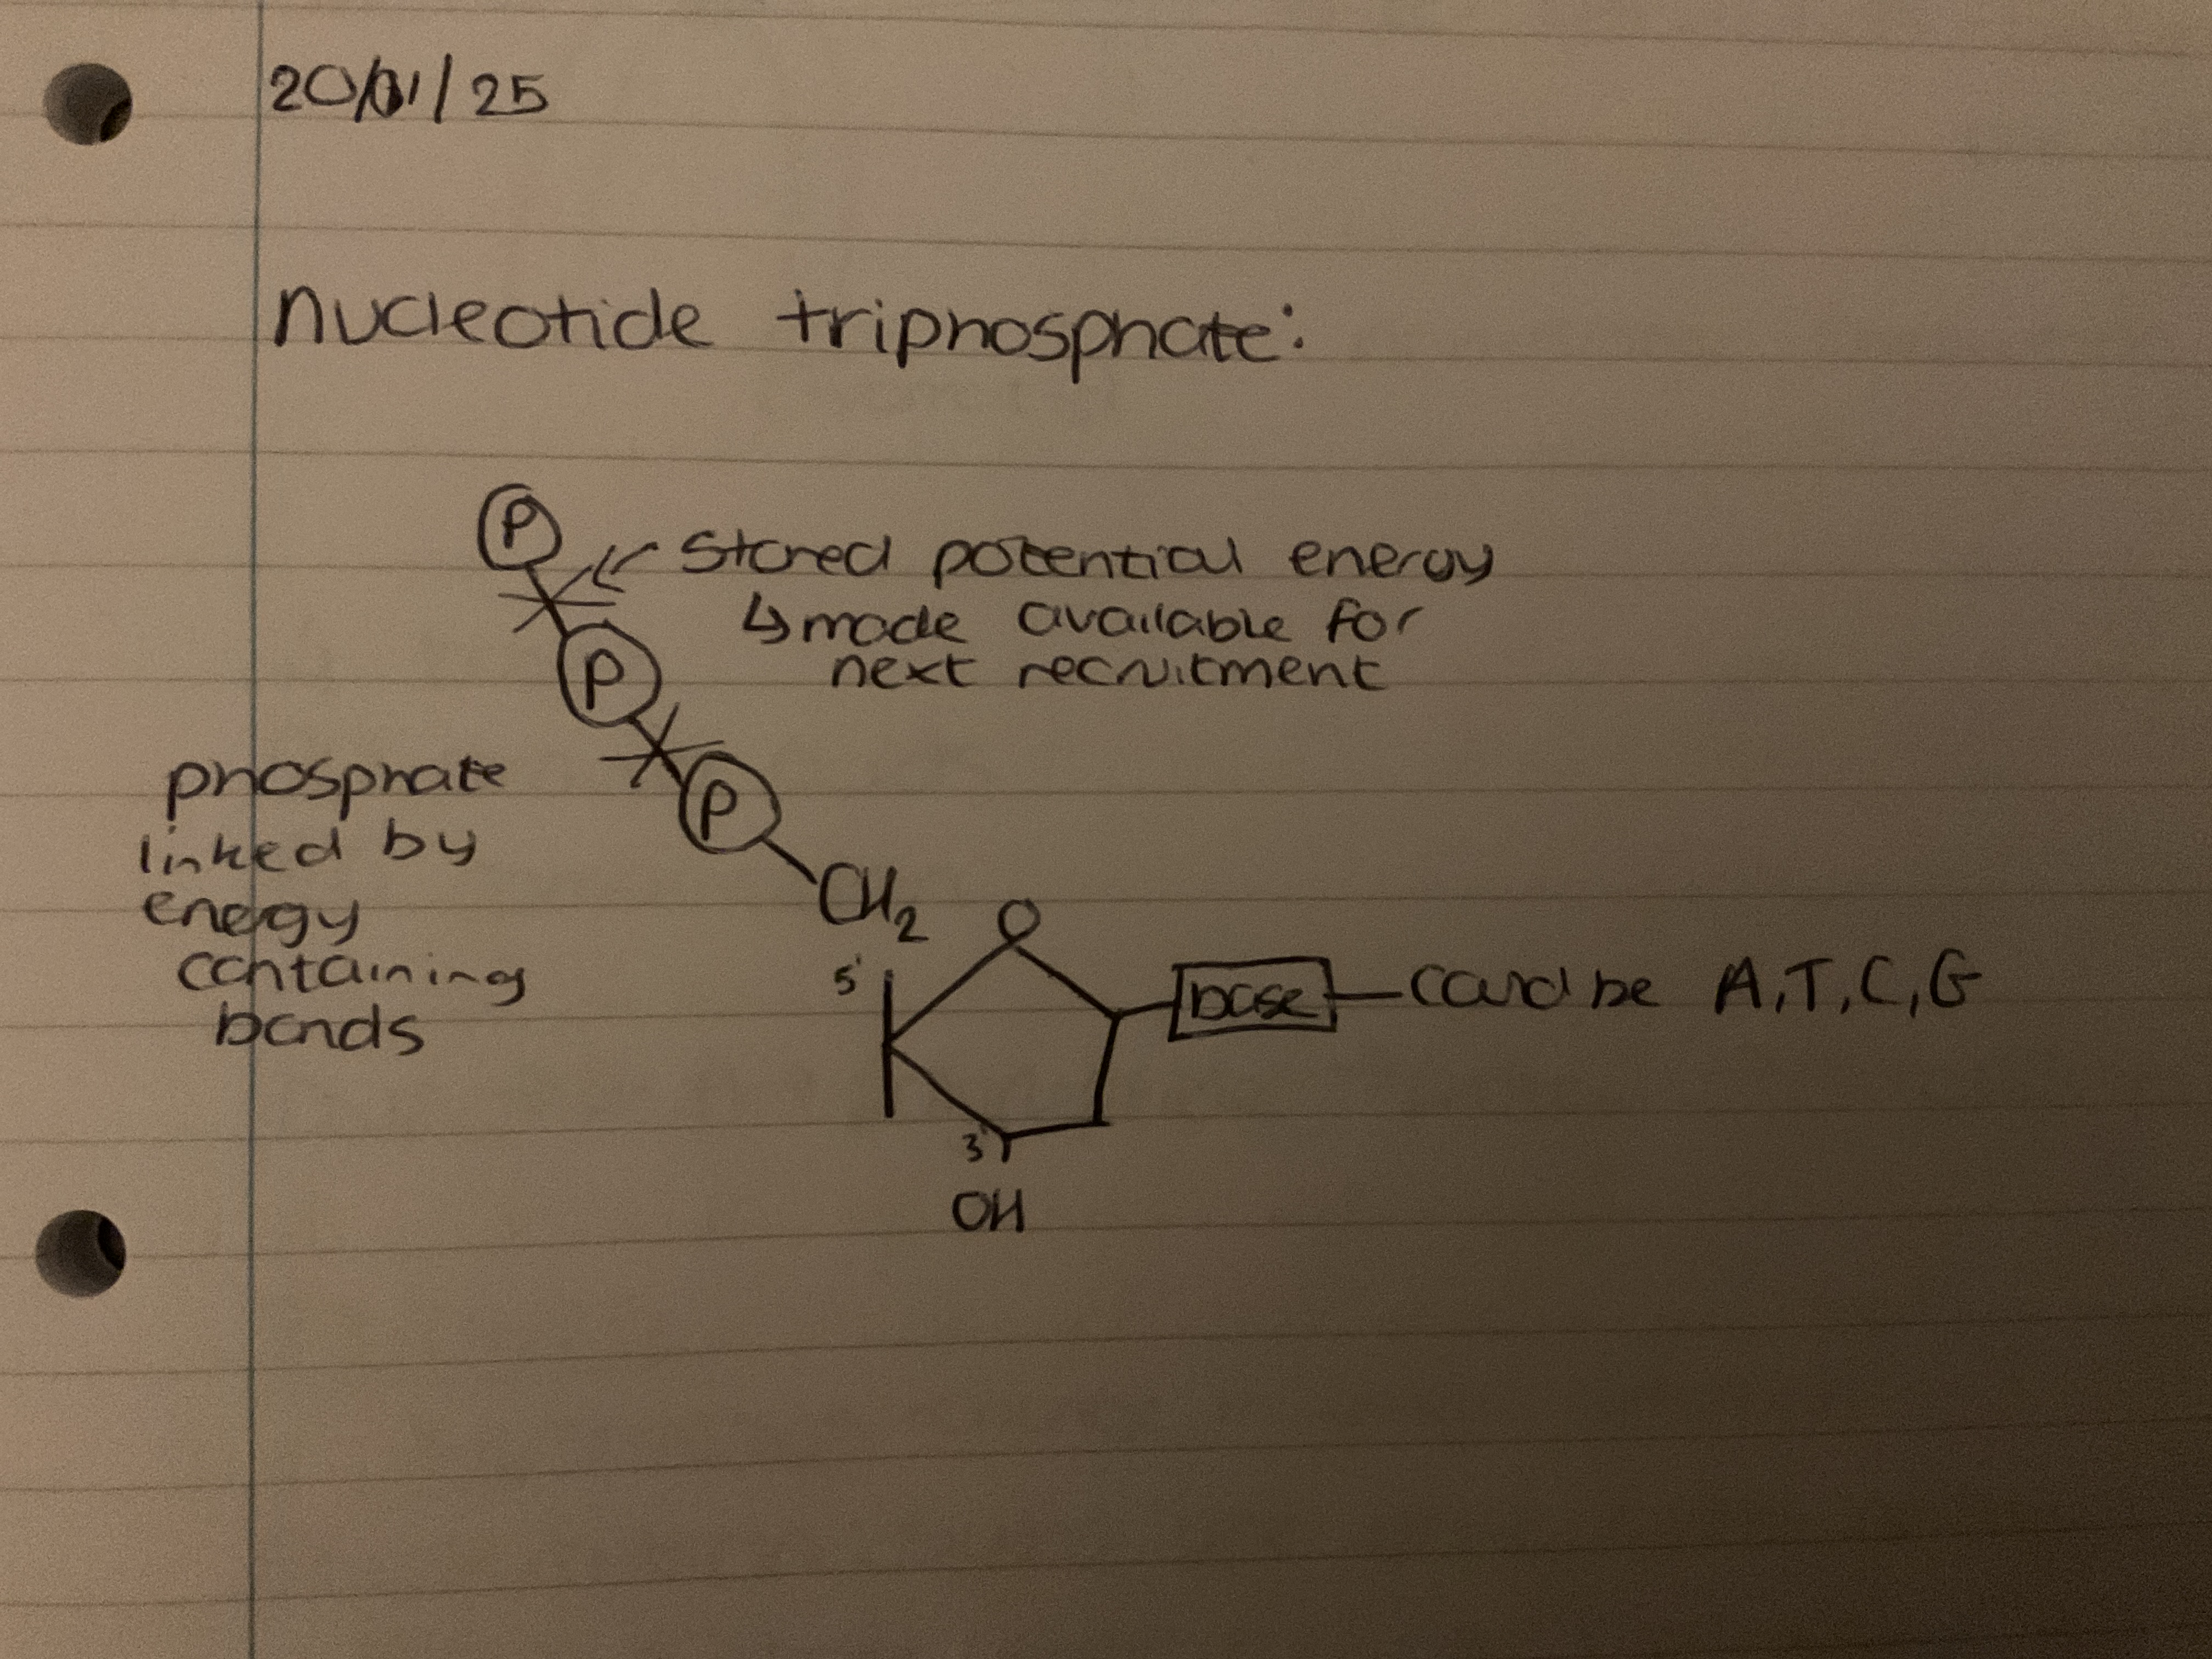 20/01/25
nucleotide triphosphate:
P
stored potential energy
↳ made available for
next recruitment
P
P
phosphate
linked by
energy
containing
bonds
CH2
O
5'
base
could be A, T, C, G
3'
OH